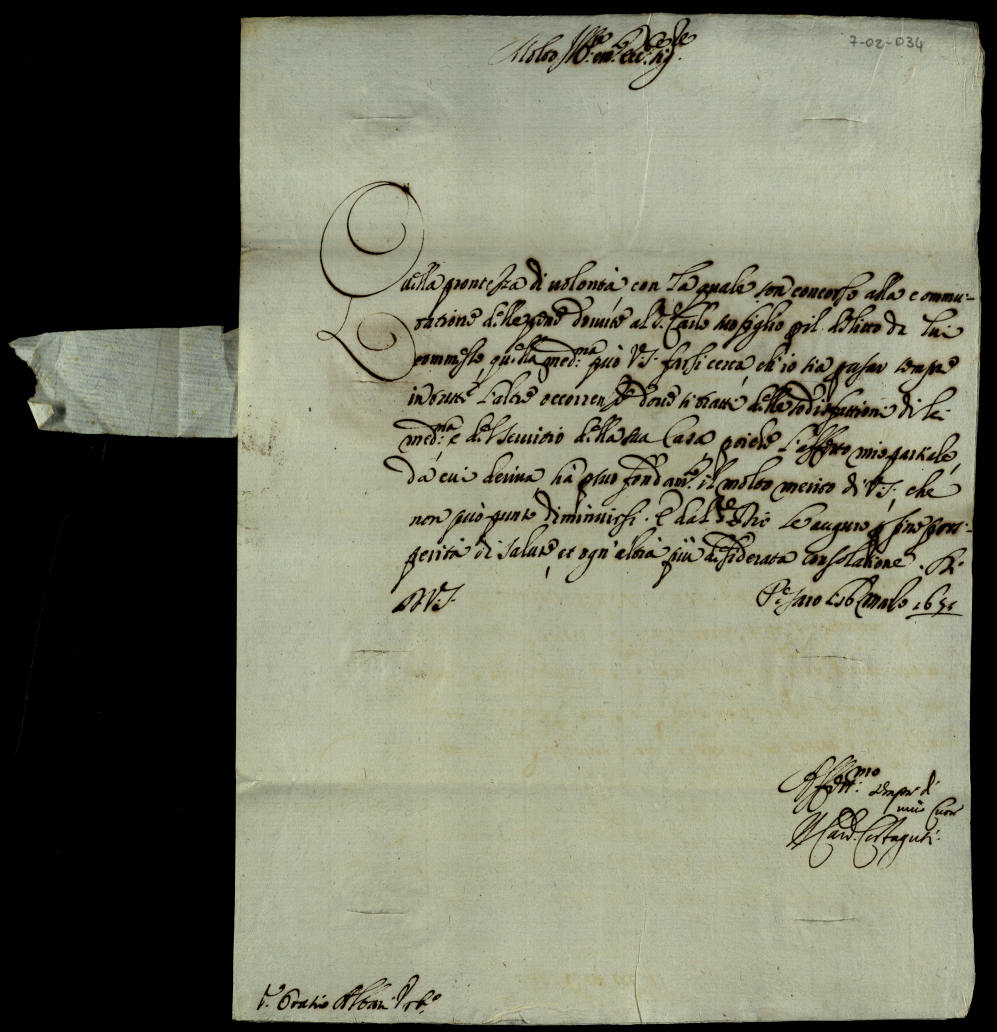 7-02-034
Molto Ill.re et m.to ecc.te Sig.re
Quella prontezza di volontà con la quale son concorso alla commu-
tatione delle pene dovute al S.r Carlo suo figlio p il delitto da lui
commesso, quella med.ma può V.S. farsi certa, ch'io sia p usar sempre
in tutte l'altre occorrenze dove si tratti della sodisfattione di lei
med.ma e del servitio della sua Casa, poiche l'affetto mio partiale,
da cui deriva hà p suo fondam.to il molto merito di V.S., che
non può punto diminuirsi. E dal S.re Dio le auguro p fine pros-
perità di salute, et ogn'altra più desiderata consolatione. Di
V.S. Pesaro li 16 Marzo 1651
Aff.mo sempre di
mio Cuore
Il Card. Costaguti
S.r Oratio Albani Urb.o